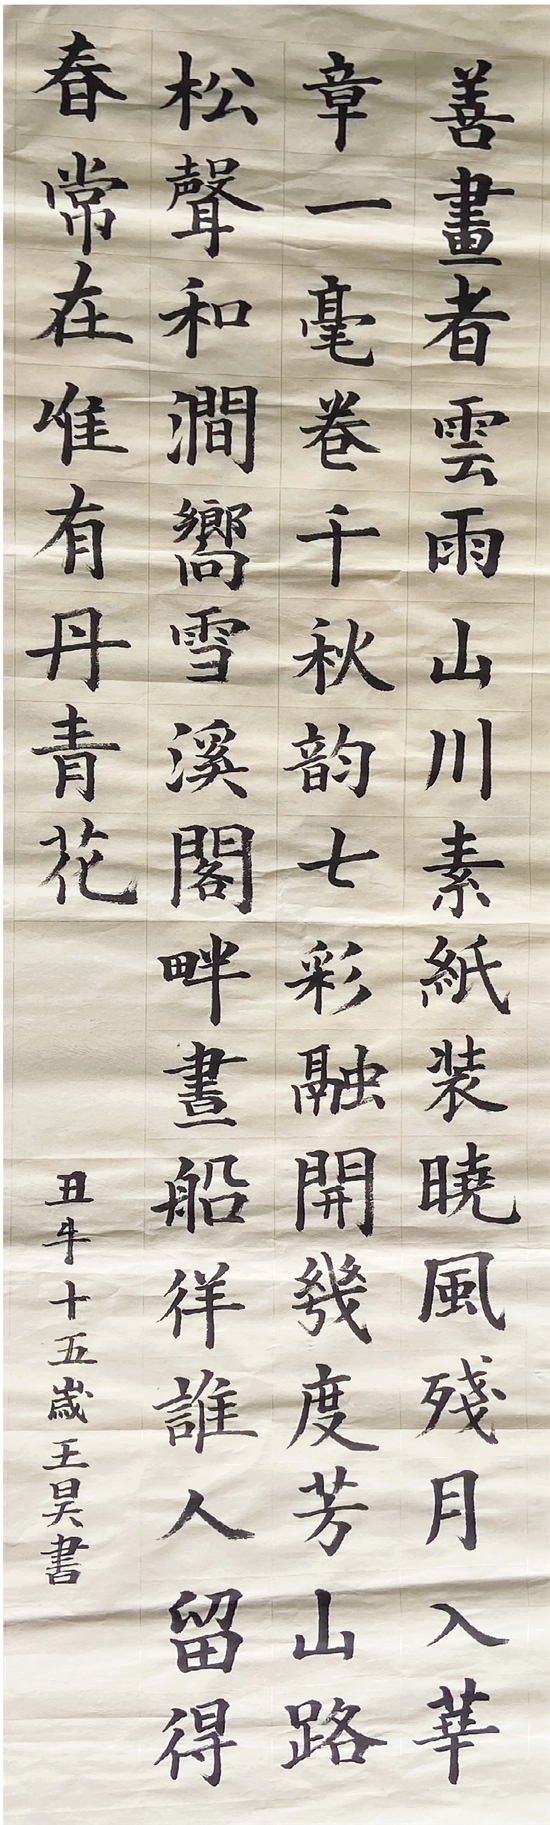 善畫者雲雨山川素紙装曉風殘月入華
章一毫卷千秋韵七彩融開幾度芳山路
松聲和澗嚮雪溪閣畔晝船徉誰人留得
春常在唯有丹青花
丑牛十五歲王昊書